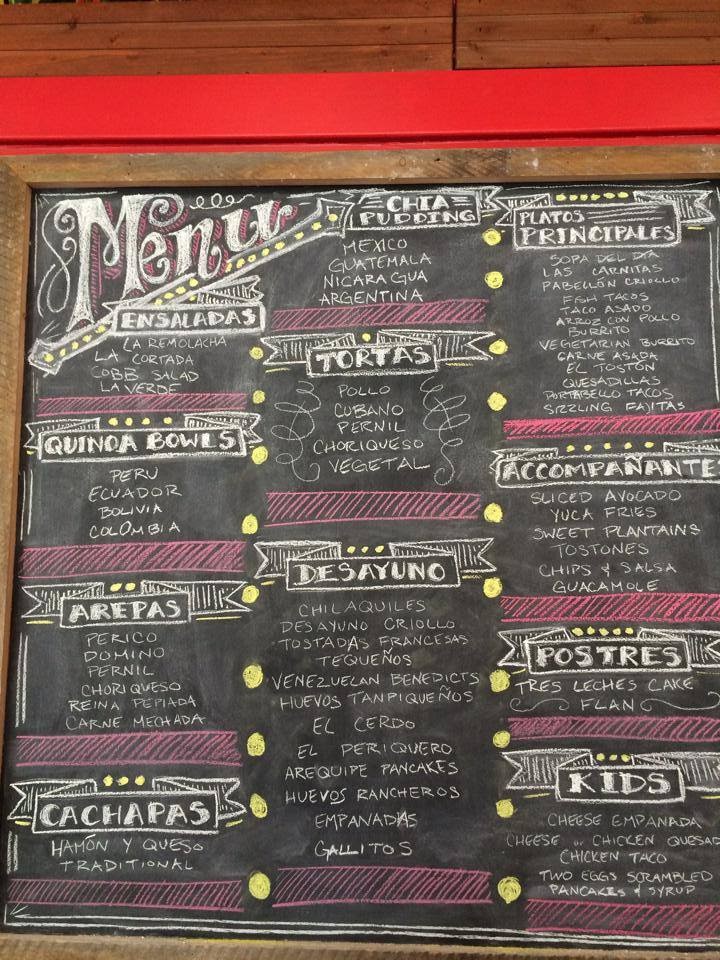 Menu
ENSALADAS
LA REMOLACHA
LA CORTADA
COBB SALAD
LA VERDE
QUINOA BOWLS
PERU
ECUADOR
BOLIVIA
COLOMBIA
AREPAS
PERICO
DOMINO
PERNIL
CHORIQUESO
REINA PEPIADA
CARNE MECHADA
CACHAPAS
HAMÓN Y QUESO
TRADITIONAL
CHIA
PUDDING
MEXICO
GUATEMALA
NICARAGUA
ARGENTINA
TORTAS
POLLO
CUBANO
PERNIL
CHORIQUESO
VEGETAL
DESAYUNO
CHILAQUILES
DESAYUNO CRIOLLO
TOSTADAS FRANCESAS
TEQUEÑOS
VENEZUELAN BENEDICTS
HUEVOS TANPIQUEÑOS
EL CERDO
EL PERIQUERO
AREQUIPE PANCAKES
HUEVOS RANCHEROS
EMPANADAS
GALLITOS
PLATOS
PRINCIPALES
SOPA DEL DÍA
LAS CARNITAS
PABELLÓN CRIOLLO
FISH TACOS
TACO ASADO
ARROZ CON POLLO
BURRITO
VEGETARIAN BURRITO
CARNE ASADA
EL TOSTÓN
QUESADILLAS
PORTABELLO TACOS
SIZZLING FAJITAS
ACCOMPAÑANTE
SLICED AVOCADO
YUCA FRIES
SWEET PLANTAINS
TOSTONES
CHIPS & SALSA
GUACAMOLE
POSTRES
TRES LECHES CAKE
FLAN
KIDS
CHEESE EMPANADA
CHEESE or CHICKEN QUESAD
CHICKEN TACO
TWO EGGS SCRAMBLED
PANCAKES & SYRUP